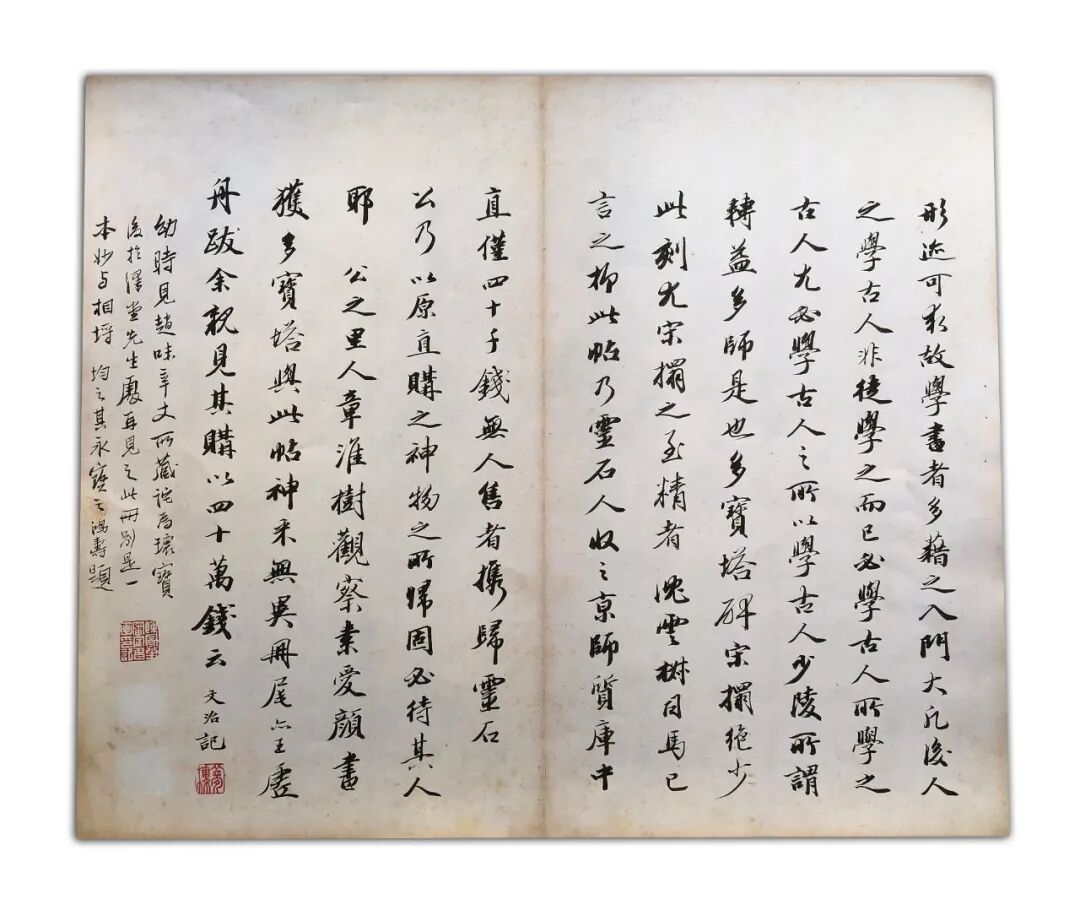 形迹可求故學書者多藉之入門大凡後人
之學古人非徒學之而已必學古人所學之
古人尤必學古人之所以學古人少陵所謂
轉益多師是也多寶塔碑宋搨絶少
此刻尤宋搨之至精者 沈雲椒司馬已
言之柳此帖乃靈石人收之京師質庫中
直僅四十千錢無人售者攜歸靈石
公乃以原直購之神物之所歸固必待其人
耶 公之里人章淮樹觀察素愛顔書
獲多寶塔與此帖神采無異冊尾亦王虛
舟跋余親見其購以四十萬錢云 文治記
幼時見趙味辛丈所藏詫為環寶
後於澤堂先生處再見之此冊別是一
本妙与相埒 均之其永寶之鴻壽題